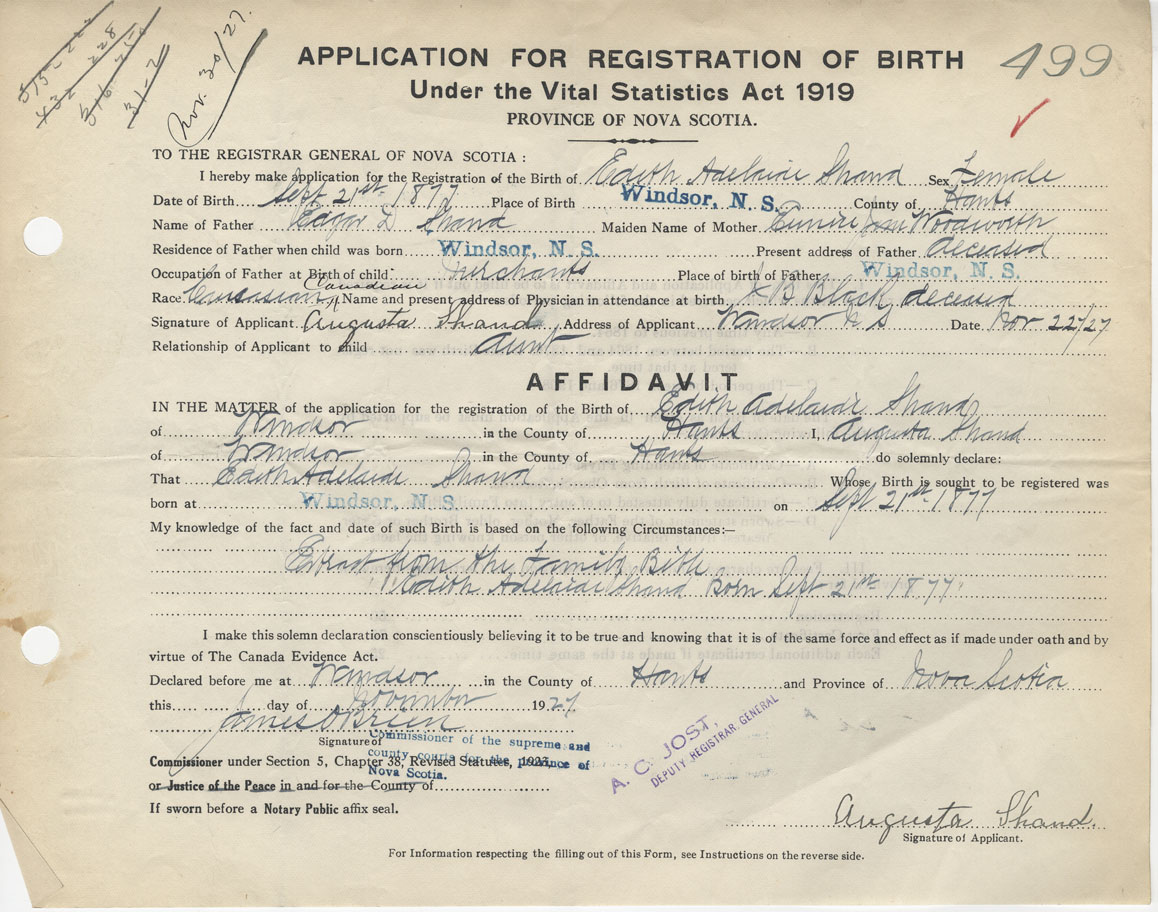 Nov. 30/27.
499
APPLICATION FOR REGISTRATION OF BIRTH
Under the Vital Statistics Act 1919
PROVINCE OF NOVA SCOTIA.
TO THE REGISTRAR GENERAL OF NOVA SCOTIA :
I hereby make application for the Registration of the Birth of Edith Adelaide Shand Sex Female
Date of Birth Sept 21st 1877 Place of Birth Windsor, N. S. County of Hants
Name of Father Edgar D Shand Maiden Name of Mother Eunice Jean Woodworth
Residence of Father when child was born Windsor, N. S. Present address of Father deceased
Occupation of Father at Birth of child Merchants Place of birth of Father Windsor, N. S.
Canadian
Race Caucasian Name and present address of Physician in attendance at birth B Black, deceased
Signature of Applicant Augusta Shand Address of Applicant Windsor N S Date Nov 22/27
Relationship of Applicant to child Aunt
AFFIDAVIT
IN THE MATTER of the application for the registration of the Birth of Edith Adelaide Shand
of Windsor in the County of Hants I, Augusta Shand
of Windsor in the County of Hants do solemnly declare:
That Edith Adelaide Shand Whose Birth is sought to be registered was
born at Windsor, N. S. on Sept 21st 1877
My knowledge of the fact and date of such Birth is based on the following Circumstances:—
from the Family Bible
Edith Adelaide Shand Born Sept 21st 1877.
I make this solemn declaration conscientiously believing it to be true and knowing that it is of the same force and effect as if made under oath and by
virtue of The Canada Evidence Act.
Declared before me at Windsor in the County of Hants and Province of Nova Scotia
this day of November 1927
James O'Brien
Signature of Commissioner of the supreme and
county courts for the province of
Nova Scotia.
Commissioner under Section 5, Chapter 38, Revised Statutes, 1923,
or Justice of the Peace in and for the County of
If sworn before a Notary Public affix seal.
A. C. JOST,
DEPUTY REGISTRAR GENERAL
Augusta Shand.
Signature of Applicant.
For Information respecting the filling out of this Form, see Instructions on the reverse side.